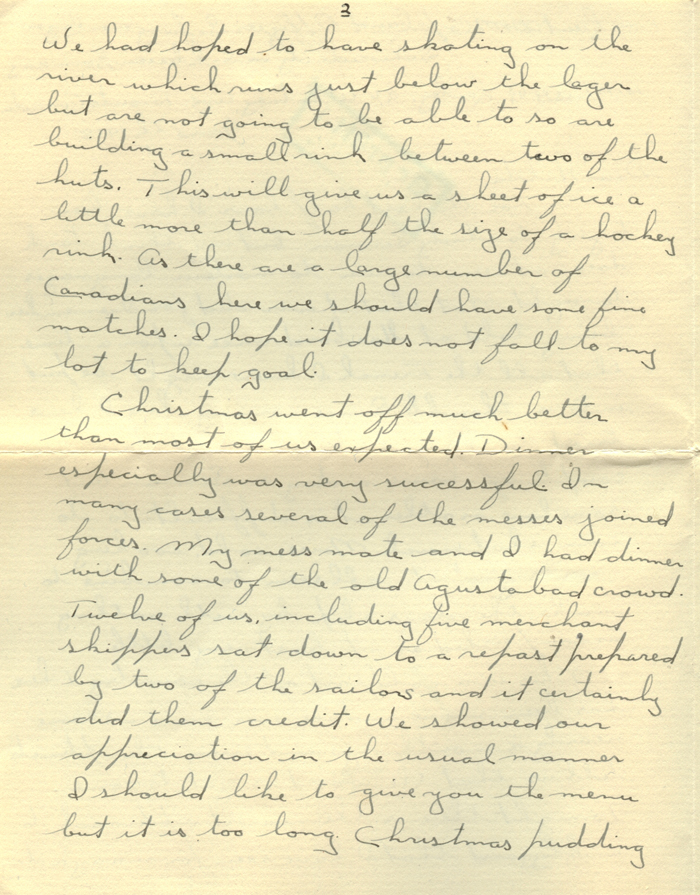 3
We had hoped to have skating on the
river which runs just below the lager
but are not going to be able to so are
building a small rink between two of the
huts. This will give us a sheet of ice a
little more than half the size of a hockey
rink. As there are a large number of
Canadians here we should have some fine
matches. I hope it does not fall to my
lot to keep goal.
Christmas went off much better
than most of us expected. Dinner
especially was very successful. In
many cases several of the messes joined
forces. My mess mate and I had dinner
with some of the old Agustabad crowd.
Twelve of us, including five merchant
skippers sat down to a repast prepared
by two of the sailors and it certainly
did them credit. We showed our
appreciation in the usual manner
I should like to give you the menu
but it is too long. Christmas pudding